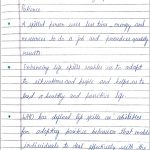 Patience
→ A skilled person uses less time, energy and
resources to do a job and produces quality
results
→ Enhancing life skills enables us to adapt
to situations and people and helps us to
lead a healthy and positive life
→ WHO has defined life skills as abilities
for adopting positive behaviour that enable
individuals to deal effectively with the